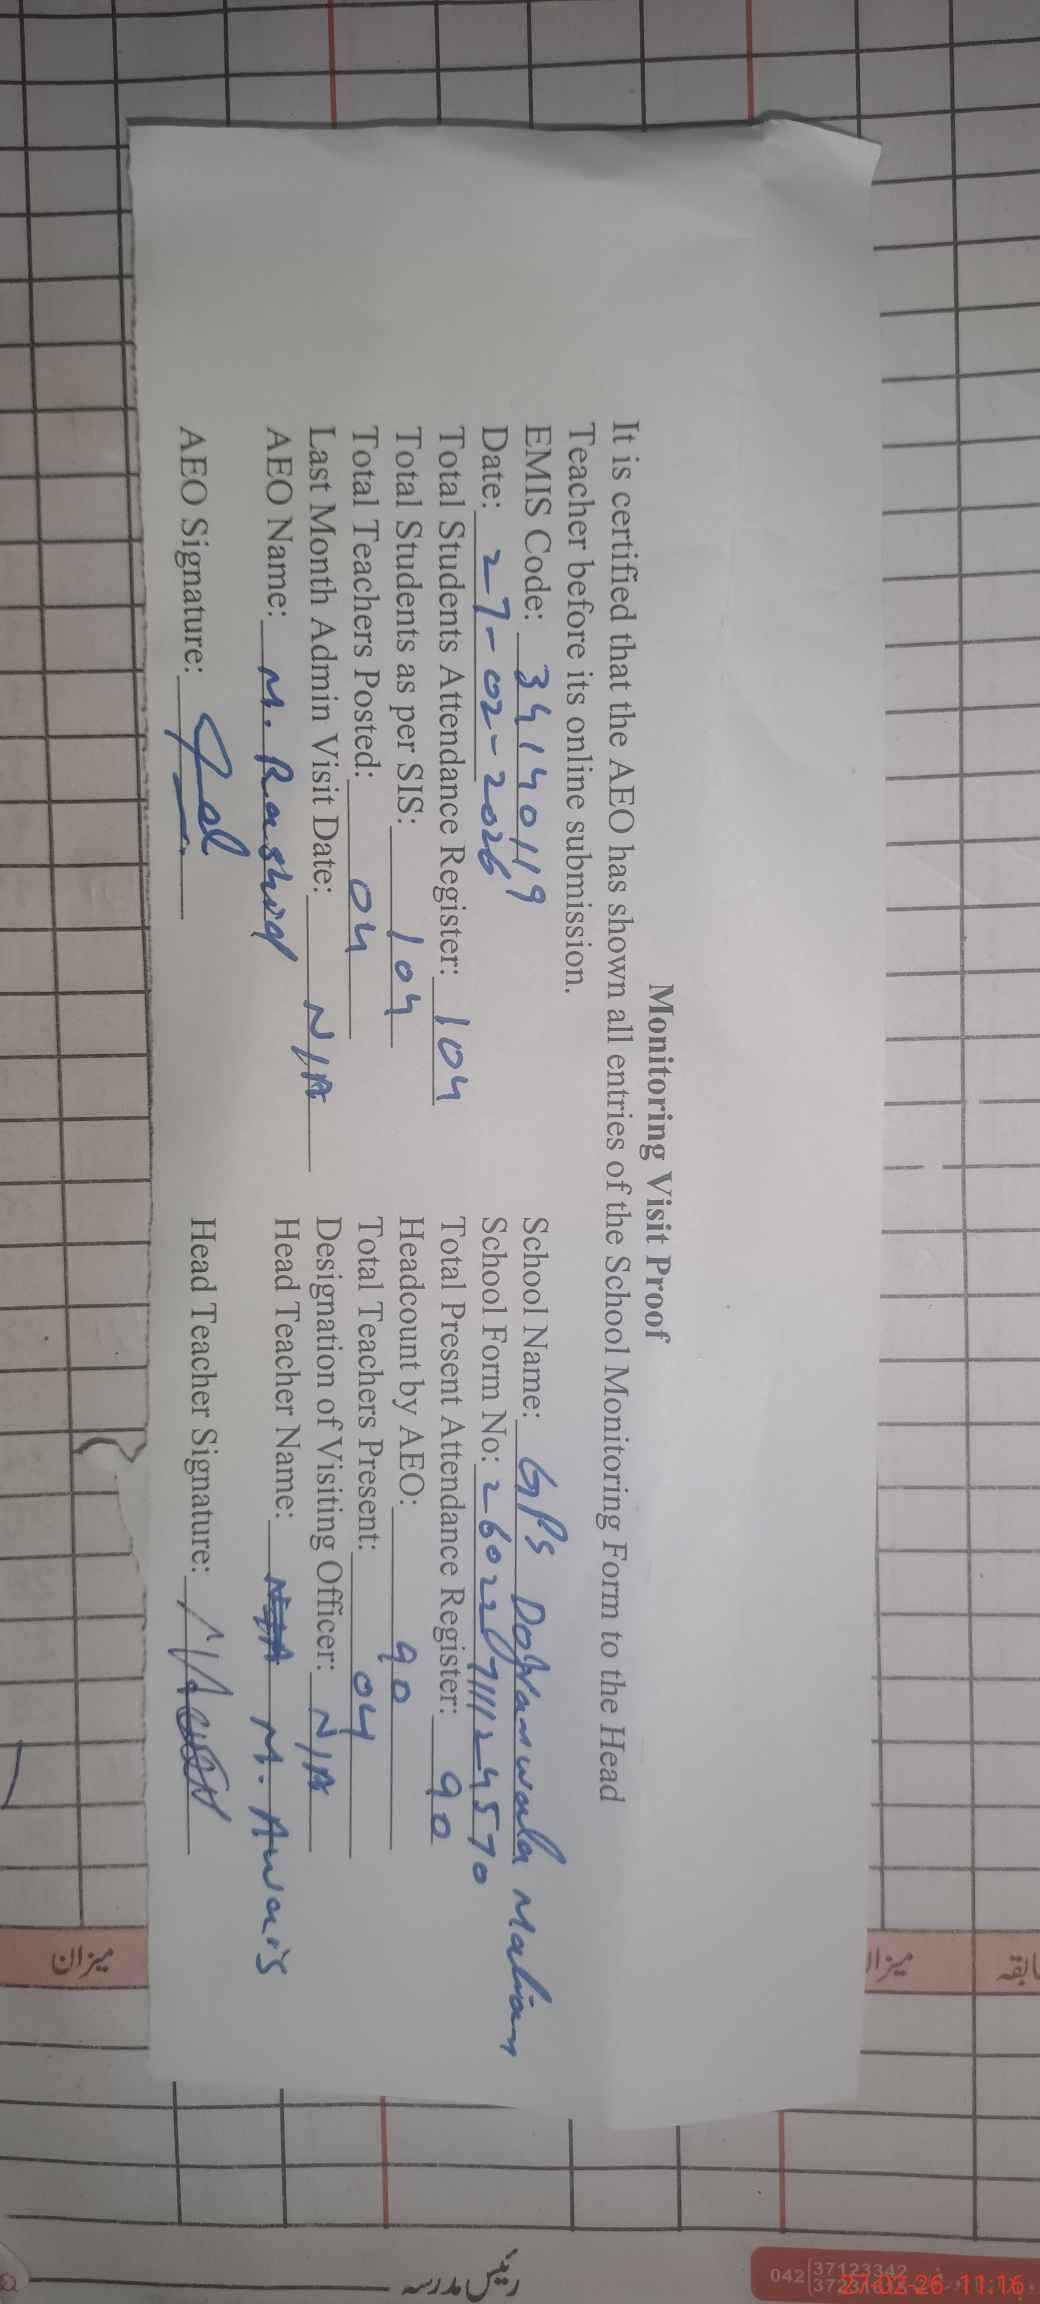 Monitoring Visit Proof
It is certified that the AEO has shown all entries of the School Monitoring Form to the Head
Teacher before its online submission.
EMIS Code: 34140119 School Name: GPS Dogranwala Malian
Date: 27-02-2026 School Form No: 260227111124570
Total Students Attendance Register: 104 Total Present Attendance Register: 90
Total Students as per SIS: 104 Headcount by AEO: 90
Total Teachers Posted: 04 Total Teachers Present: 04
Last Month Admin Visit Date: N/A Designation of Visiting Officer: N/A
AEO Name: M. Rashid Head Teacher Name: M. Awais
AEO Signature: Head Teacher Signature:
میزان
رئیس مدرسہ
042 37123342
27-02-26 11:16